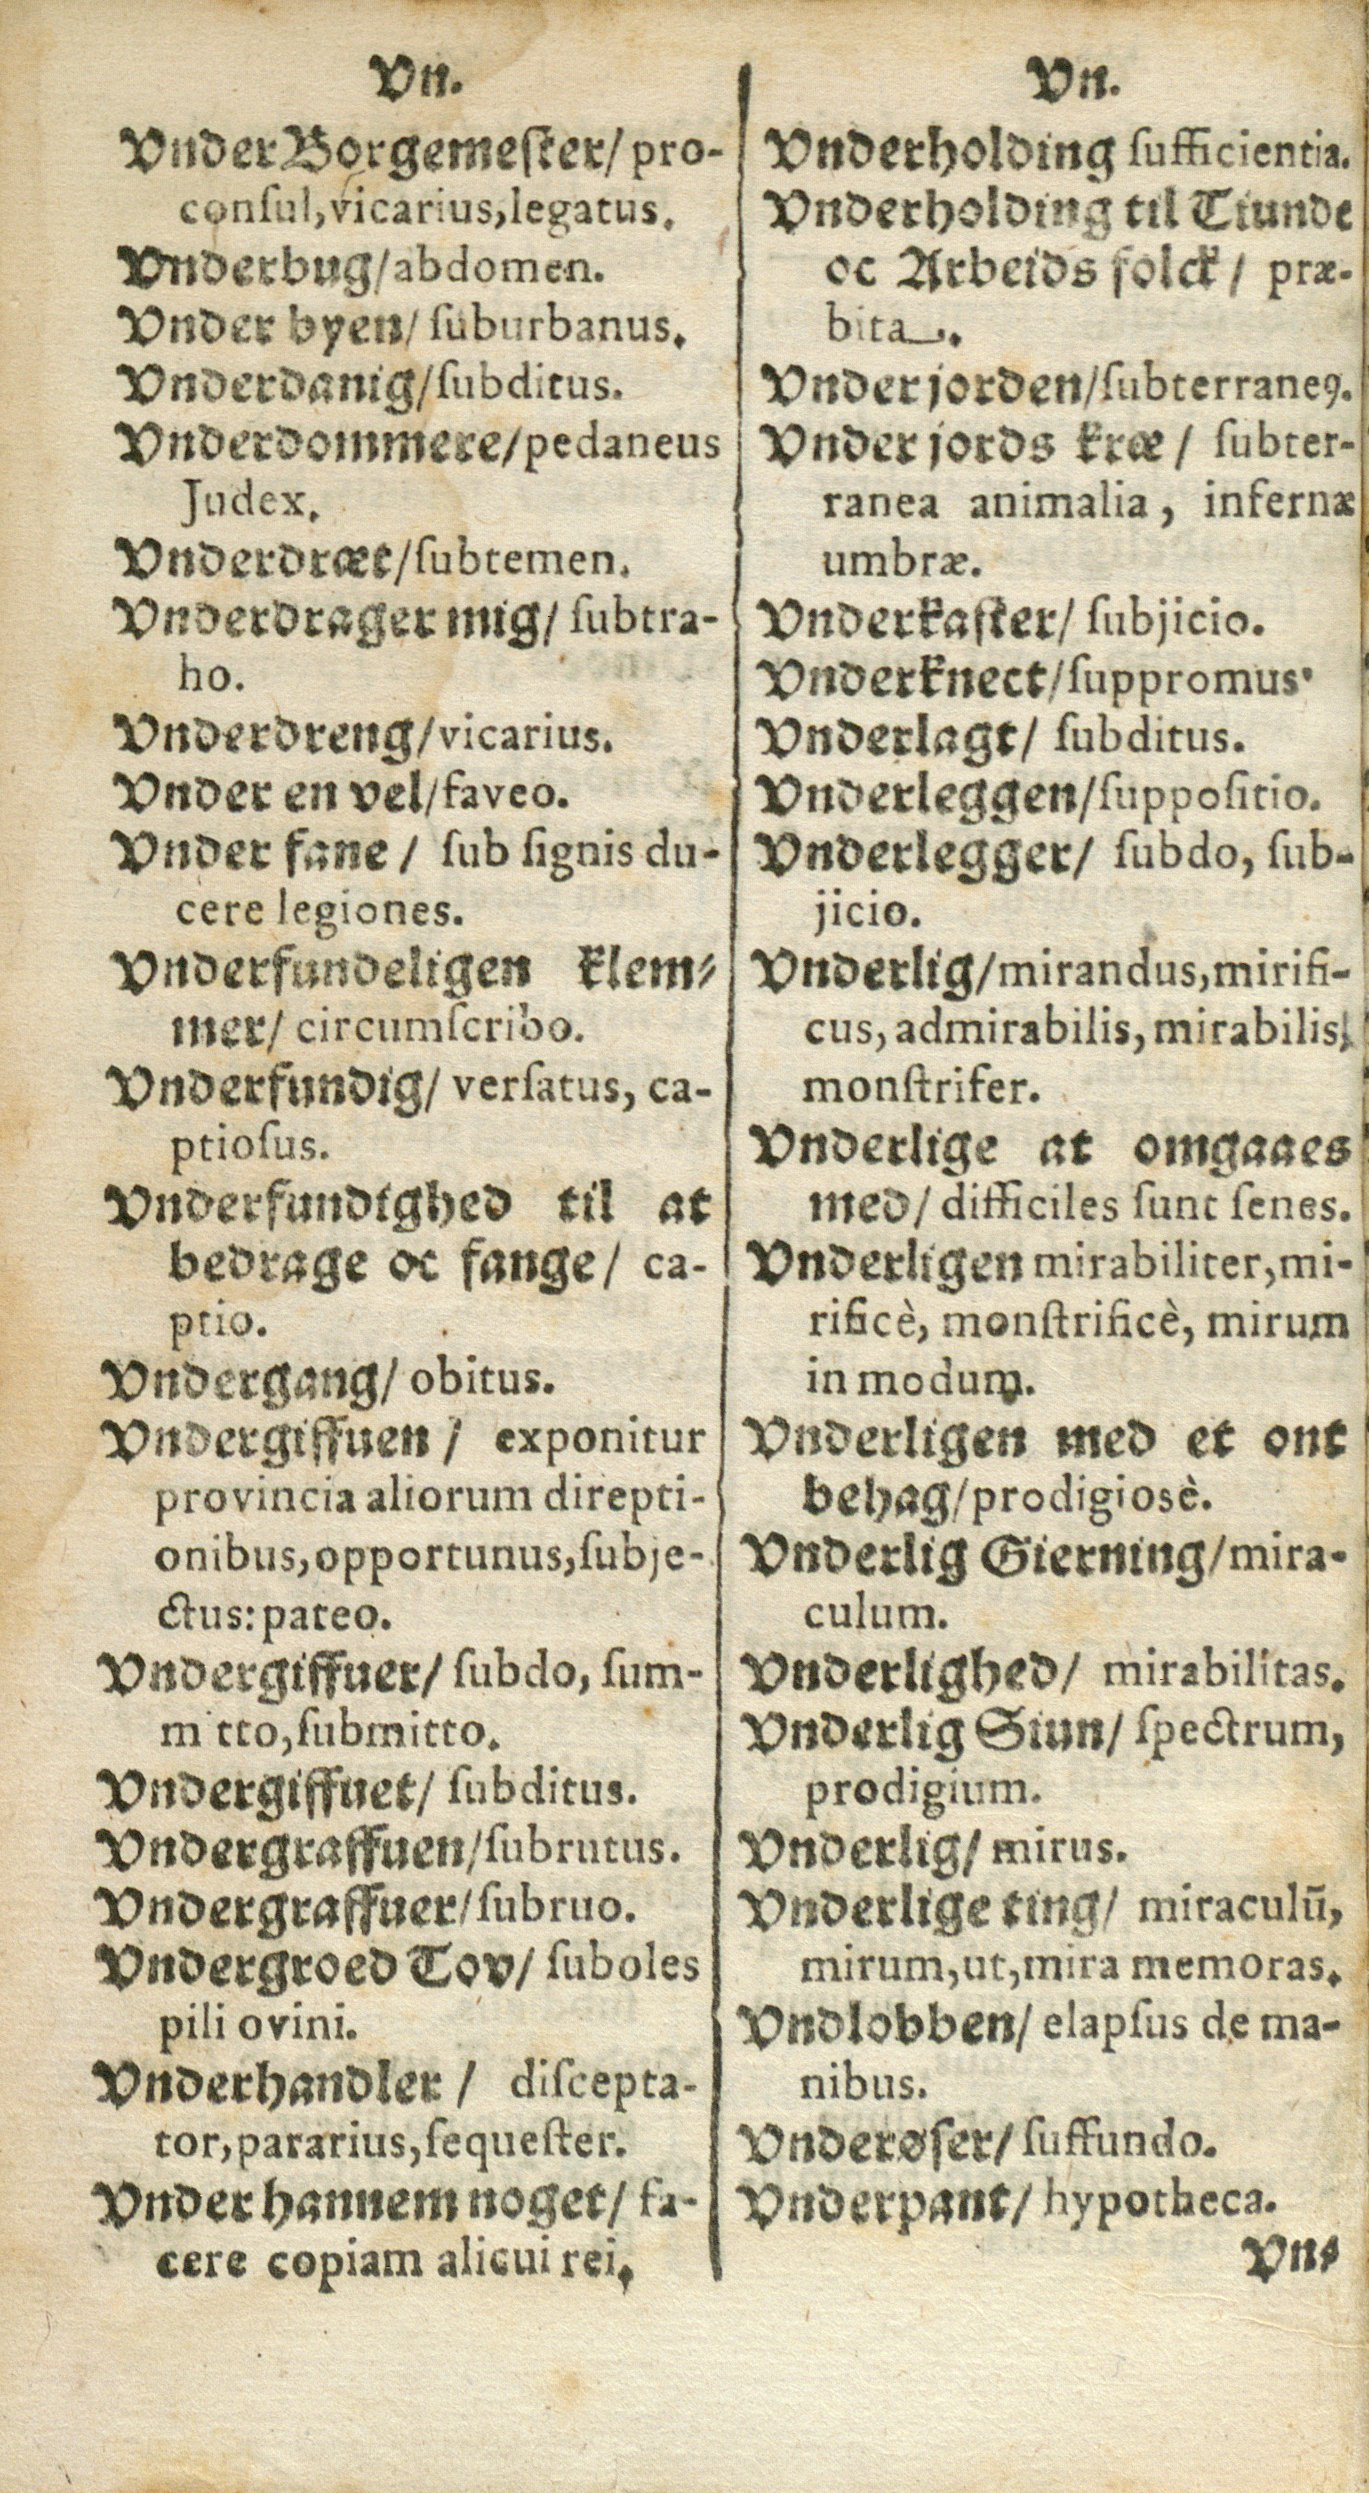 Vn.
Vnder Borgemeſter/ pro-
conſul, vicarius, legatus.
Vnderbug/ abdomen.
Vnder byen/ ſuburbanus.
Vnderdanig/ ſubditus.
Vnderdommere/ pedaneus
Judex.
Vnderdræt/ ſubtemen.
Vnderdrager mig/ ſubtra-
ho.
Vnderdreng/ vicarius.
Vnder en vel/ faveo.
Vnder fane/ ſub ſignis du-
cere legiones.
Vnderfundeligen klem⸗
mer/ circumſcribo.
Vnderfundig/ verſatus, ca-
ptioſus.
Vnderfundighed til at
bedrage oc fange/ ca-
ptio.
Vndergang/ obitus.
Vndergiffuen/ exponitur
provincia aliorum direpti-
onibus, opportunus, ſubje-
ctus: pateo.
Vndergiffuer/ ſubdo, ſum-
m tto, ſubmitto.
Vndergiffuet/ ſubditus.
Vndergraffuen/ ſubrutus.
Vndergraffuer/ ſubruo.
Vndergroed Tov/ ſuboles
pili ovini.
Vnderhandler/ diſcepta-
tor, pararius, ſequeſter.
Vnder hannem noget/ fa-
cere copiam alicui rei.
Vn.
Vnderholding ſufficientia.
Vnderholding til Tiunde
oc Arbeids folck/ præ-
bita.
Vnder jorden/ ſubterraneꝰ.
Vnder jords kræ/ ſubter-
ranea animalia, infernæ
umbræ.
Vnderkaſter/ ſubjicio.
Vnderknect/ ſuppromus.
Vnderlagt/ ſubditus.
Vnderleggen/ ſuppoſitio.
Vnderlegger/ ſubdo, ſub-
jicio.
Vnderlig/ mirandus, mirifi-
cus, admirabilis, mirabilis,
monſtrifer.
Vnderlige at omgaaes
med/ difficiles ſunt ſenes.
Vnderligen mirabiliter, mi-
rificè, monſtrificè, mirum
in modum.
Vnderligen med et ont
behag/ prodigiosè.
Vnderlig Gierning/ mira-
culum.
Vnderlighed/ mirabilitas.
Vnderlig Siun/ ſpectrum,
prodigium.
Vnderlig/ mirus.
Vnderlige ting/ miraculū,
mirum, ut, mira memoras.
Vndlobben/ elapſus de ma-
nibus.
Vnderøſer/ ſuffundo.
Vnderpant/ hypotheca.
Vn⸗